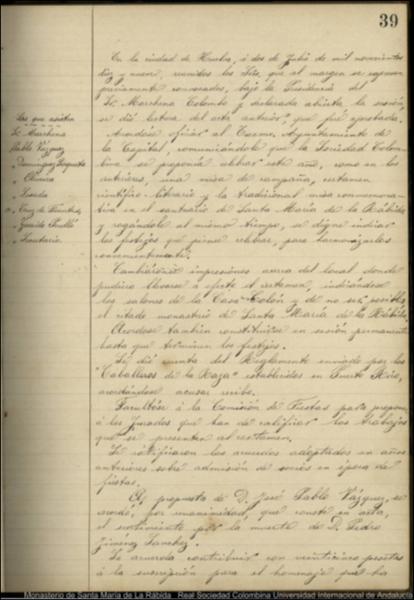 39
En la ciudad de Huelva, á dos de Julio de mil novecientos
diez y nueve, reunidos los Sres. que al margen se expresan
previamente convocados, bajo la Presidencia del
Sr. Marchena Colombo y declarada abierta la sesión,
se dió lectura del acta anterior, que fué aprobada.
Acordose oficiar al Excmo. Ayuntamiento de
la Capital, comunicándole que la Sociedad Colom-
bina se proponía celebrar este año, como en los
anteriores, una misa de campaña, certamen
científico-literario y la tradicional misa conmemora-
tiva en el santuario de Santa María de la Rábida
y rogándole al mismo tiempo, se digne indicar
los festejos que piensa celebrar, para harmonizarlos
convenientemente.
Cambiáronse impresiones acerca del local donde
pudiera llevarse á efecto el certamen, indicándose
los salones de la Casa-Colón y de no ser posible,
el citado monasterio de Santa María de la Rábida.
Acordose también constituirse en sesión permanente
hasta que terminen los festejos.
Se dió cuenta del Reglamento enviado por los
"Caballeros de la Raza" establecidos en Puerto Rico,
acordándose acusar recibo.
Facultose á la Comisión de Fiestas para proponer
á los Jurados que han de calificar los trabajos
que se presenten al certamen.
Se ratificaron los acuerdos adoptados en años
anteriores sobre admisión de socios en época de
fiestas.
A propuesta de D. José Pablo Vázquez, se
acordó, por unanimidad que conste en acta,
el sentimiento por la muerte de D. Pedro
Jiménez Sanchez.
Se acuerda contribuir con veinticinco pesetas
á la suscripción para el homenaje que ha
Sres. que asisten
Sr. Marchena
Pablo Vázquez
" Dominguez
" Oliveira
" Cruz de
" Garrido Perelló
Monasterio de Santa María de La Rábida . Real Sociedad Colombina Universidad Internacional de Andalucía